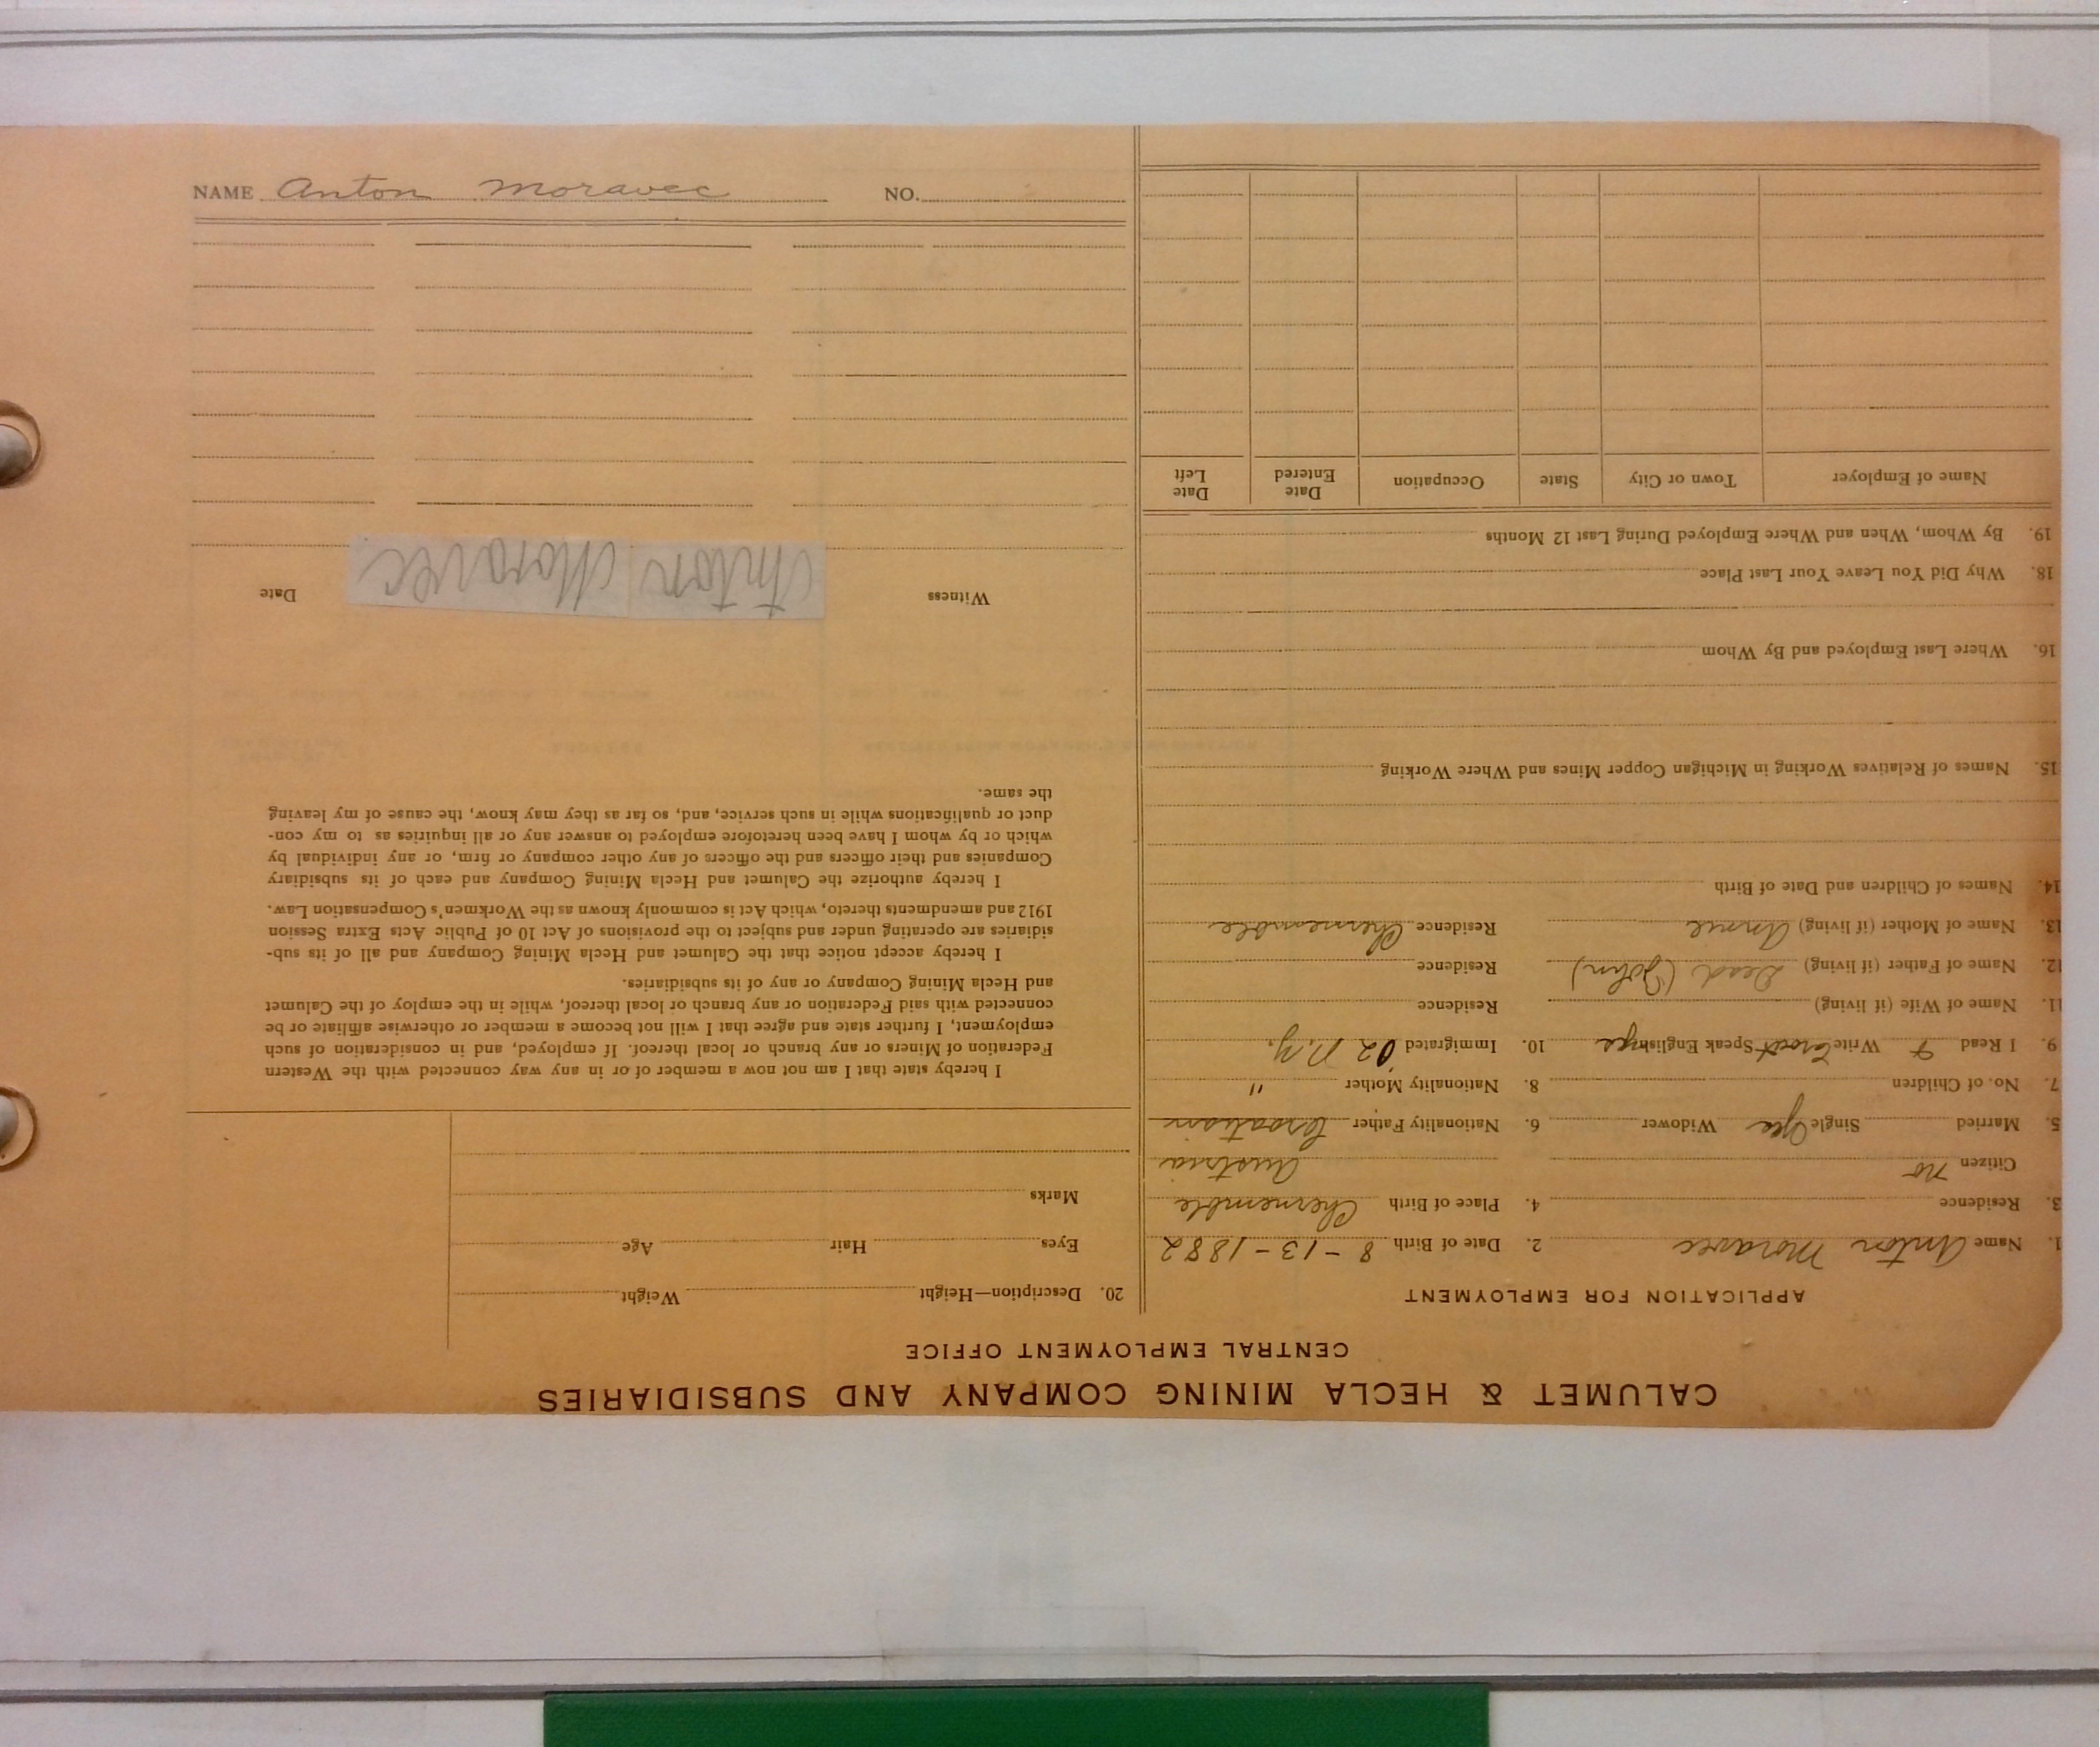 CALUMET & HECLA MINING COMPANY AND SUBSIDIARIES
CENTRAL EMPLOYMENT OFFICE
APPLICATION FOR EMPLOYMENT
1. Name Anton Moravec 2. Date of Birth 8-13-1882
3. Residence 4. Place of Birth Chernemble
Citizen no Austria
5. Married Single Yes Widower 6. Nationality Father Croatian
7. No. of Children 8. Nationality Mother "
9. I Read & Write Croat Speak English yes 10. Immigrated 02 N.Y.
11. Name of Wife (if living) Residence
12. Name of Father (if living) Dead (John) Residence
13. Name of Mother (if living) Annie Residence Chernemble
14. Names of Children and Date of Birth
15. Names of Relatives Working in Michigan Copper Mines and Where Working
16. Where Last Employed and By Whom
18. Why Did You Leave Your Last Place
19. By Whom, When and Where Employed During Last 12 Months
Name of Employer Town or City State Occupation Date Entered Date Left
20. Description—Height Weight
Eyes Hair Age
Marks
I hereby state that I am not now a member of or in any way connected with the Western
Federation of Miners or any branch or local thereof. If employed, and in consideration of such
employment, I further state and agree that I will not become a member or otherwise affiliate or be
connected with said Federation or any branch or local thereof, while in the employ of the Calumet
and Hecla Mining Company or any of its subsidiaries.
I hereby accept notice that the Calumet and Hecla Mining Company and all of its sub-
sidiaries are operating under and subject to the provisions of Act 10 of Public Acts Extra Session
1912 and amendments thereto, which Act is commonly known as the Workmen's Compensation Law.
I hereby authorize the Calumet and Hecla Mining Company and each of its subsidiary
Companies and their officers and the officers of any other company or firm, or any individual by
which or by whom I have been heretofore employed to answer any or all inquiries as to my con-
duct or qualifications while in such service, and, so far as they may know, the cause of my leaving
the same.
Witness Anton Moravec Date
NAME Anton Moravec NO.